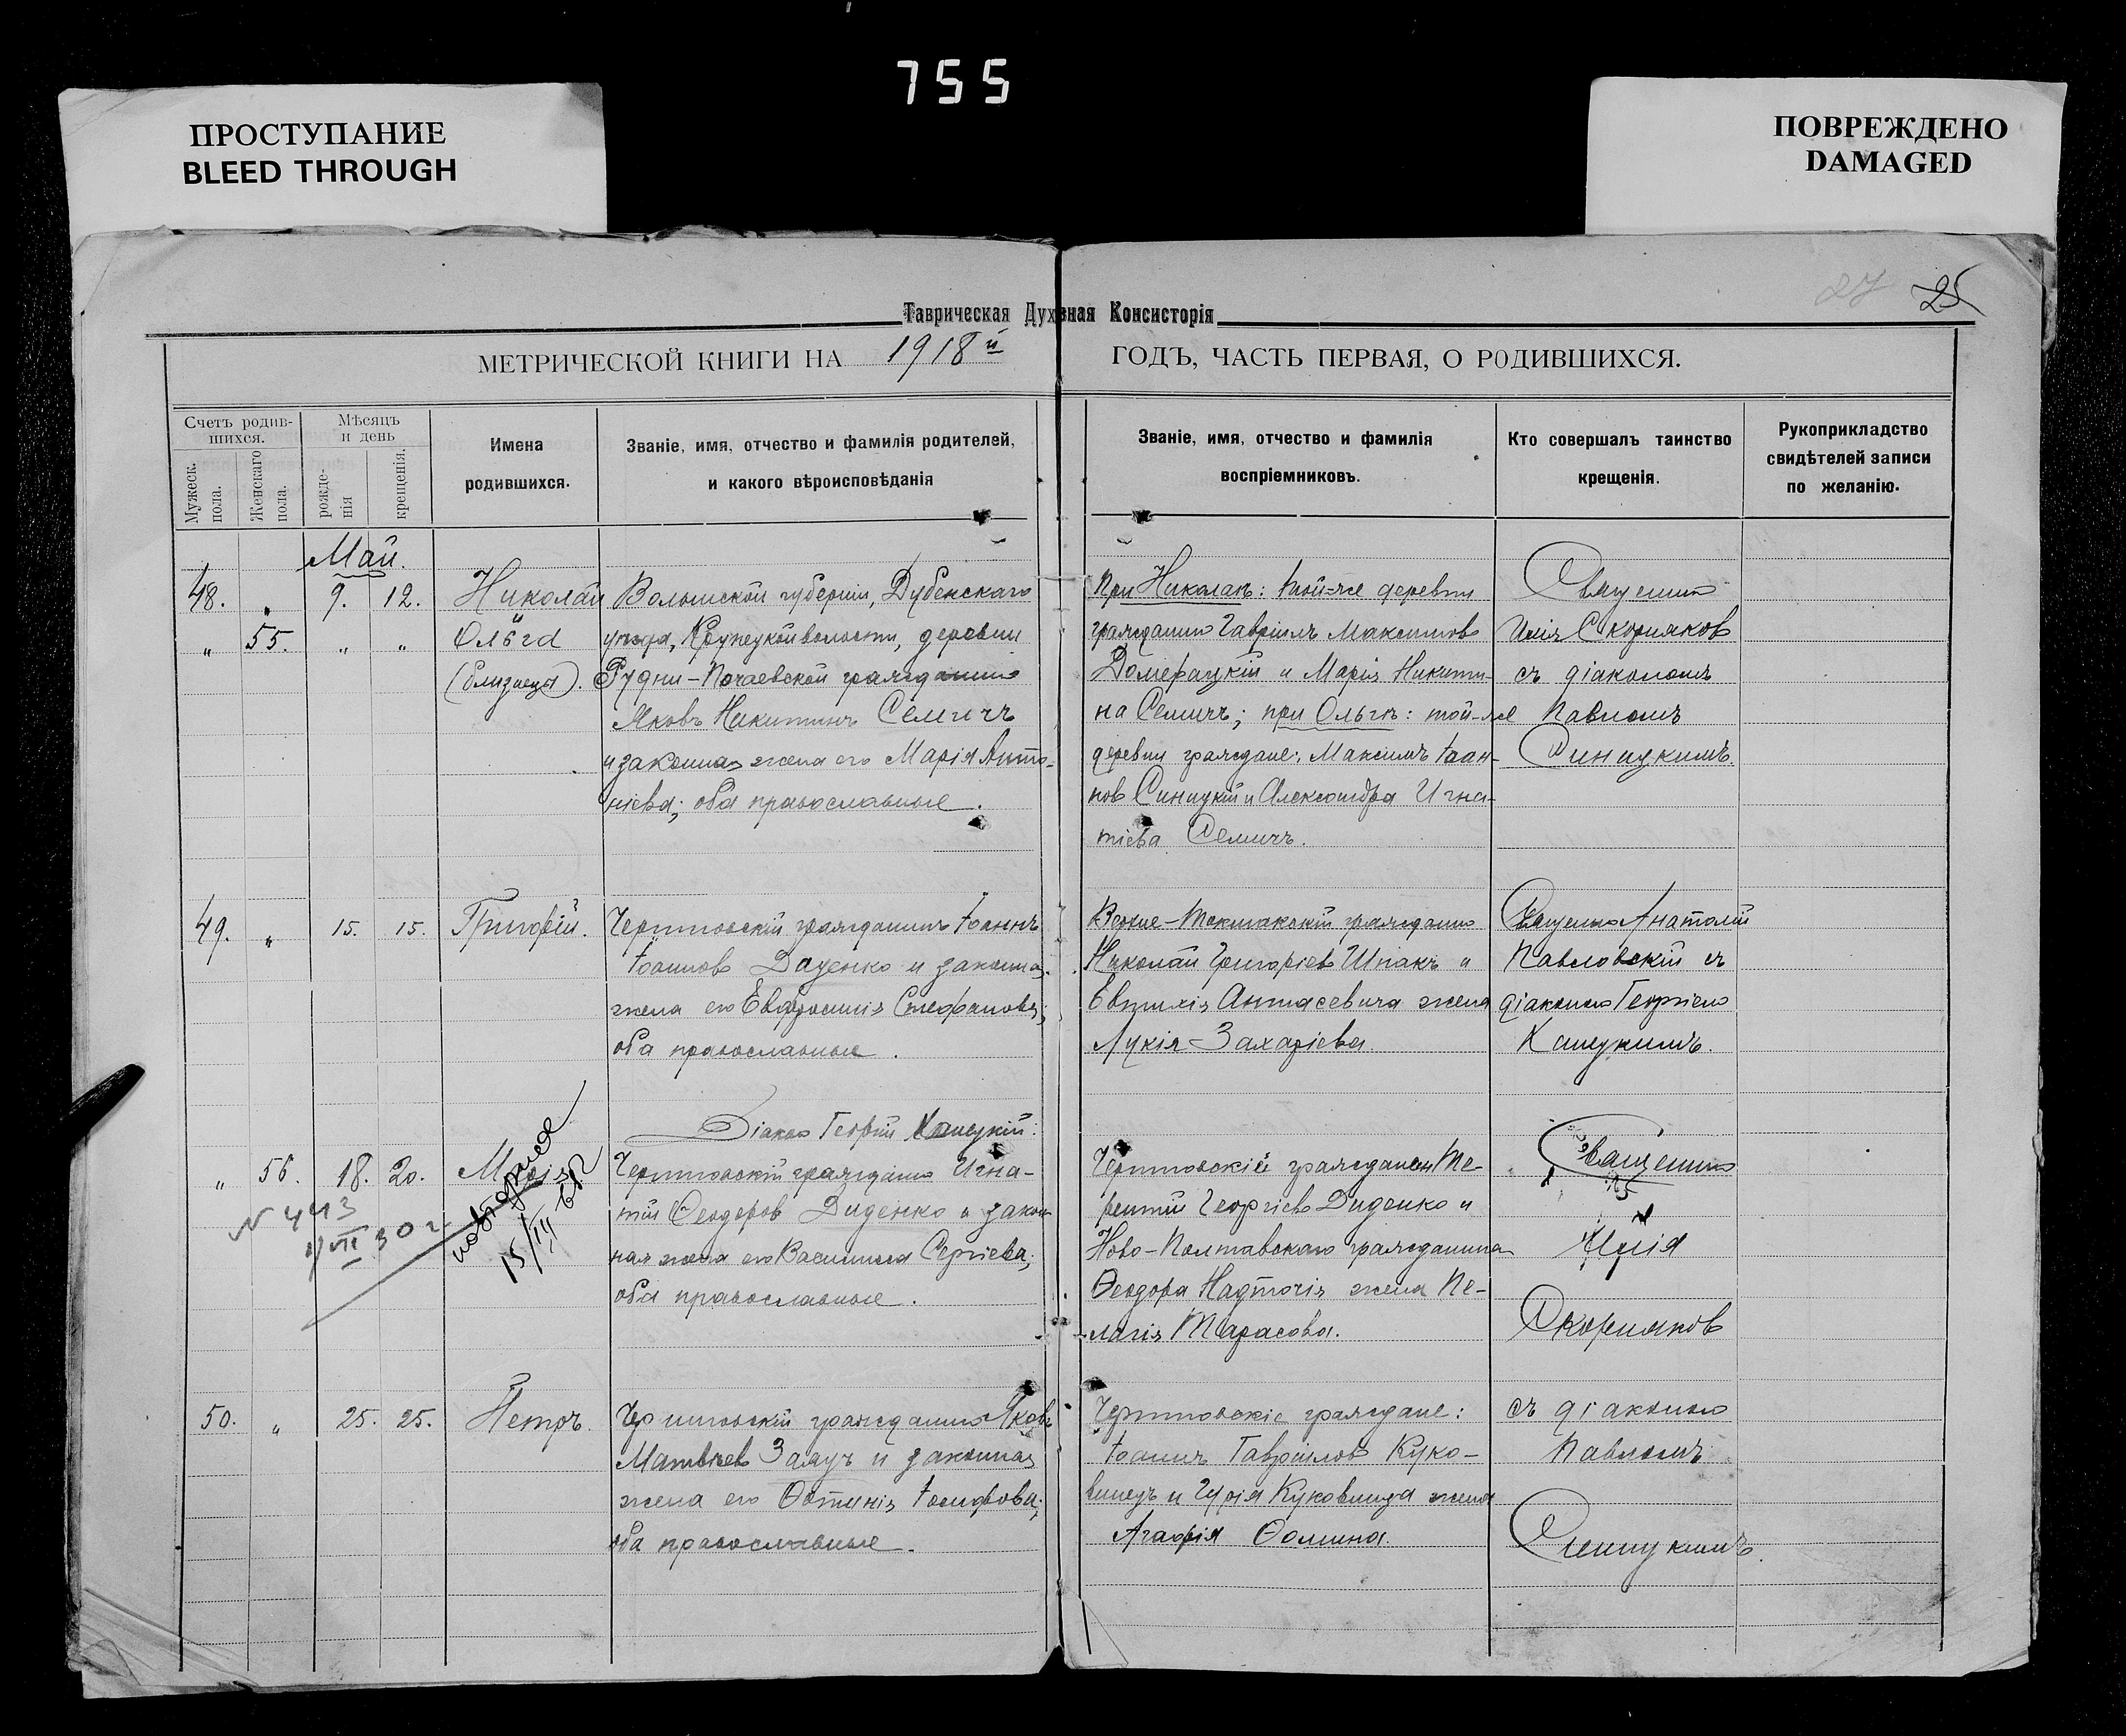 755
ПРОСТУПАНИЕ
BLEED THROUGH
ПОВРЕЖДЕНО
DAMAGED
27 25
Таврическая Духвная Консисторія
МЕТРИЧЕСКОЙ КНИГИ НА 1918й ГОДЪ, ЧАСТЬ ПЕРВАЯ, О РОДИВШИХСЯ.
Счетъ родив-
шихся.
Мужеск.
пола.
Женскаго
пола.
Мѣсяцъ
и день
рожде-
нія
крещенія.
Имена
родившихся.
Званіе, имя, отчество и фамилія родителей,
и какого вѣроисповѣданія
Званіе, имя, отчество и фамилія
воспріемниковъ.
Кто совершалъ таинство
крещенія.
Рукоприкладство
свидѣтелей записи
по желанію.
Май.
48. " 9. 12. Николай
" 55. " " Ольга
(близнецы).
Волынской губерніи, Дубенскаго
уѣзда, волости, деревни
Рудни-Почаевской гражданинъ
Яковъ Никитинъ Семичъ
и законная жена его Марія Анто-
ніева; оба православные.
При Николаѣ: той-же деревни
гражданинъ Гавріилъ Максимовъ
Домерацкій и Марія Никити-
на Семичъ; при Ольгѣ: той-же
деревни граждане: Максимъ Іоан-
нов Синицкій и Александра Игна-
тіева Семичъ.
Священникъ
Илія Скорняков
съ діакономъ
Павломъ
Синицкимъ.
49. " 15. 15. Григорій.
Черниговскій гражданинъ Іоаннъ
Іоанновъ Даценко и законная
жена его Евфросинія Стефанова;
оба православные.
Діаконъ Георгій Каницкій.
Верхне-Токмакскій гражданинъ
Николай Григоріев Шпакъ и
Евтихія Антасевича жена
Лукія Захаріева.
Священникъ Анатолій
Павловскій съ
діакономъ Георгіемъ
Каницкимъ.
" 56. 18. 20. Марія
N 443
1/VII 30 г.
повторное
15/III 
Черниговскій гражданинъ Игна-
тій Ѳеодоров Диденко и закон-
ная жена его Василиса Сергіева;
оба православные.
Черниговскій гражданин Те-
рентій Георгіевъ Диденко и
Ново-Полтавскаго гражданина
Ѳеодора Надточія жена Пе-
лагія Тарасова.
Священникъ
Илія
Скорняков
50. " 25. 25. Петръ.
Черниговскій гражданинъ Яковъ
Матвѣевъ Заяцъ и законная
жена его Фотинія Іосифова;
оба православные.
Черниговскіе граждане:
Іоаннъ Гавріилов Куко-
виецъ и Гурія жена
Агафія Ѳомина.
съ діакономъ
Павломъ
Синицкимъ.